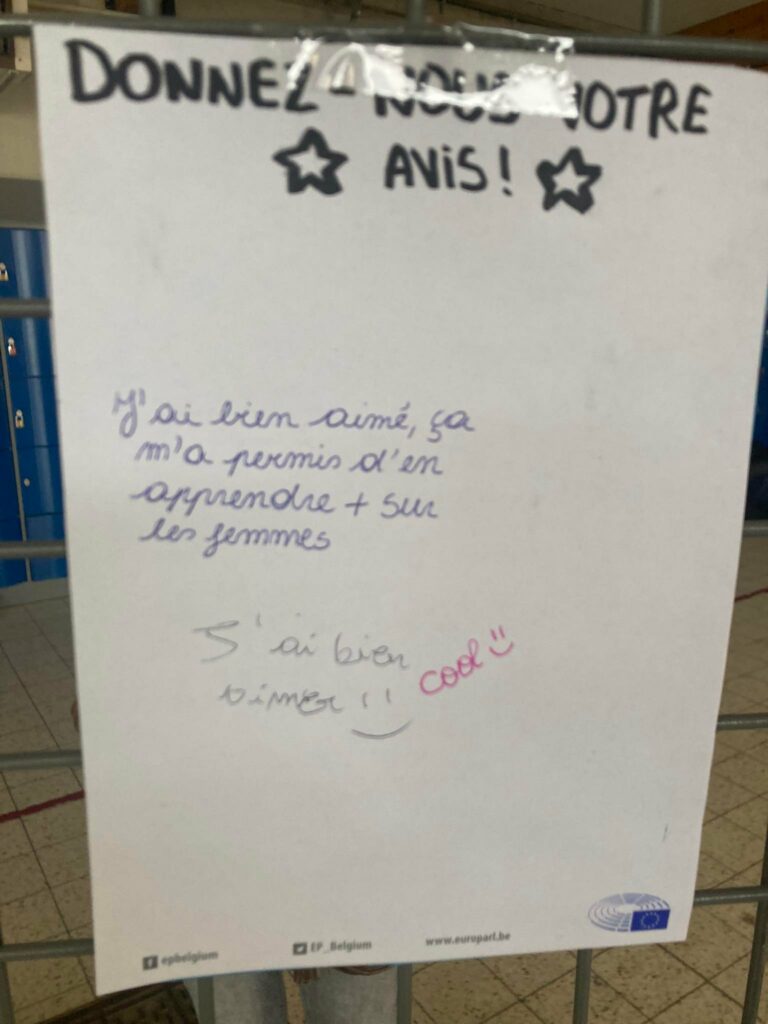 DONNEZ-NOUS VOTRE
AVIS!
J'ai bien aimé, ça
m'a permis d'en
apprendre + sur
les femmes
J'ai bien
aimer
cool
epbelgium
EP_Belgium
www.europarl.be